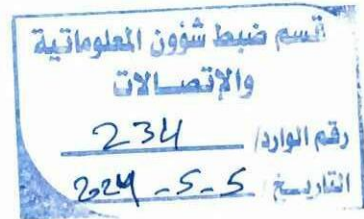 قسم ضبط شؤون المعلوماتية
والإتصالات
رقم الوارد/ 234
التاريخ 2024 - 5 - 5